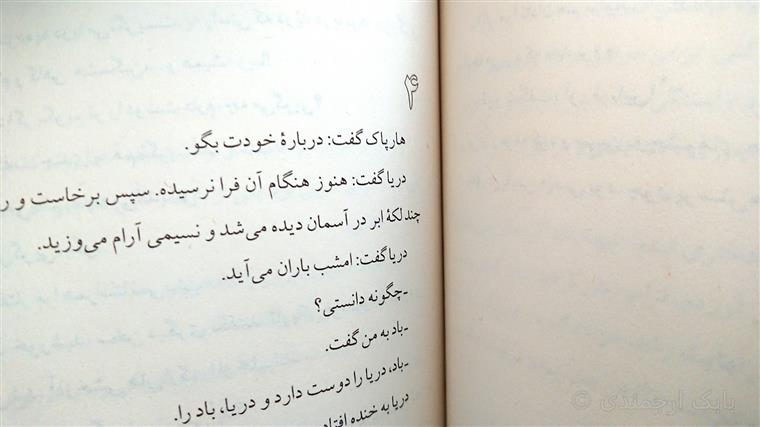 ۴
هارپاک گفت: دربارهٔ خودت بگو.
دریا گفت: هنوز هنگام آن فرا نرسیده. سپس برخاست و ر
چند لکهٔ ابر در آسمان دیده می‌شد و نسیمی آرام می‌وزید.
دریا گفت: امشب باران می‌آید.
ـ چگونه دانستی؟
ـ باد به من گفت.
ـ باد، دریا را دوست دارد و دریا، باد را.
دریا به خنده افتاد
© بابک ارجمندی